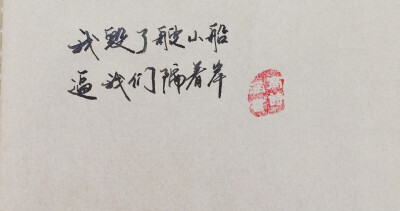 我毁了艘小船
逼我们隔着岸